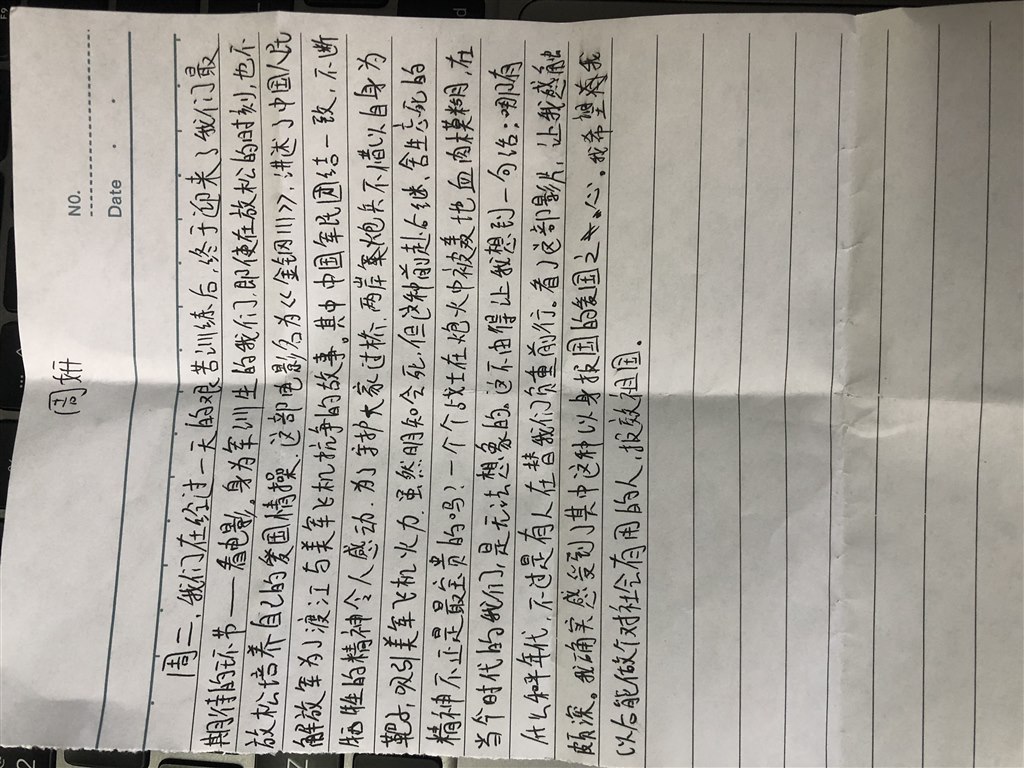 NO.
Date
周妍
周二,我们在经过一天的艰苦训练后,终于迎来了我们最
期待的环节——看电影。身为军训生的我们,即使在放松的时刻,也不
放松培养自己的爱国情操。这部电影名为《金钢川》,讲述了中国人民
解放军为了渡江与美军飞机抗争的故事。其中中国军民团结一致,不断
牺牲的精神令人感动。为了守护大家过桥,两岸炮兵不惜以自身为
靶子,吸引美军飞机火力。虽然明知会死,但这种前赴后继、舍生忘死的
精神不正是最宝贵的吗?一个个战士在炮火中被轰地血肉模糊,在
当今时代的我们,是无法想象的。这不由得让我想到一句话:哪有
什么和平年代,不过是有人在替我们负重前行。看了这部影片,让我感触
颇深。我确实感受到了其中这种以身报国的爱国之心。我希望有我
以后能做个对社会有用的人,报效祖国。
F9
d
Z
2